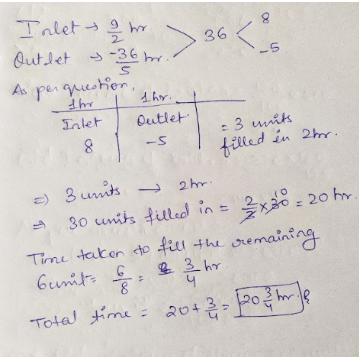 Inlet → 9/2 hr
Outlet → -36/5 hr. > 36 < 8 -5
As per question,
1hr 1hr.
Inlet Outlet
8 -5
= 3 units filled in 2hr.
⇒ 3 units → 2hr.
⇒ 30 units filled in = 2/3 × 30 10 = 20 hr.
Time taken to fill the remaining
6 unit = 6/8 = 3/4 hr
Total time = 20 + 3/4 = 20 3/4 hr.